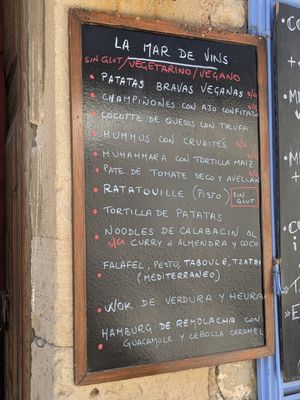 LA MAR DE VINS
SIN GLUT/VEGETARINO/VEGANO
PATATAS BRAVAS VEGANAS S/G
CHAMPIÑONES CON AJO CONFITADO S/G
COCOTTE DE QUESOS CON TRUFA
HUMMUS CON CRUDITÉS S/G
MUHAMMARA CON TORTILLA MAIZ S/G
PATE DE TOMATE SECO Y AVELLAN
RATATOUILLE (PISTO) SIN GLUT
TORTILLA DE PATATAS
NOODLES DE CALABACIN AL
S/G CURRY + ALMENDRA Y COCO
FALAFEL, PESTO, TABOULÉ, TZATZ
(MEDITERRANEO)
WOK DE VERDURA Y HEURA
HAMBURG DE REMOLACHA CON
GUACAMOLE Y CEBOLLA CARAMEL